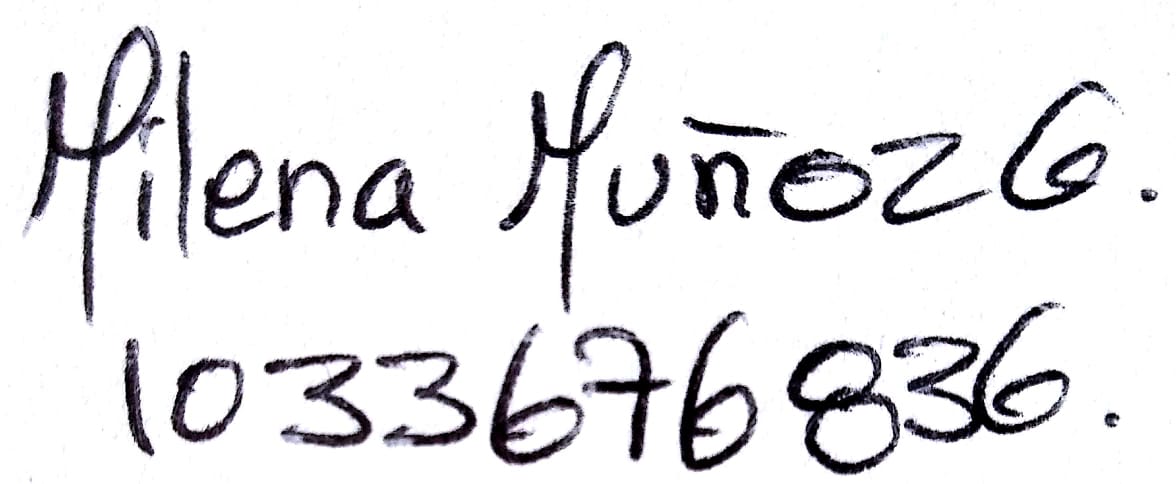 Milena Muñoz G.
1033676836.